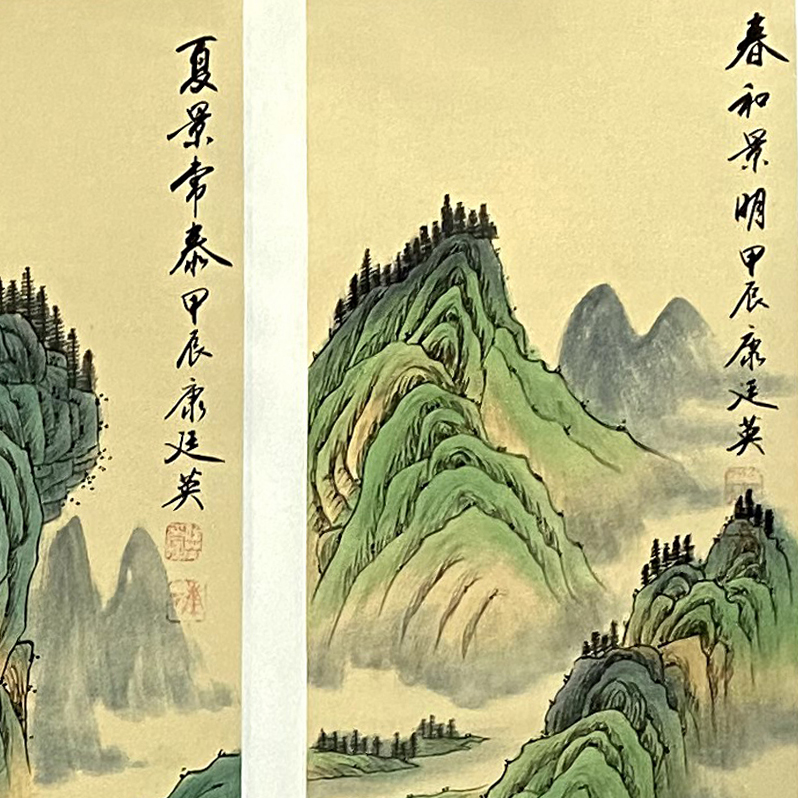 春和景明甲辰康廷英
夏景常泰甲辰康廷英